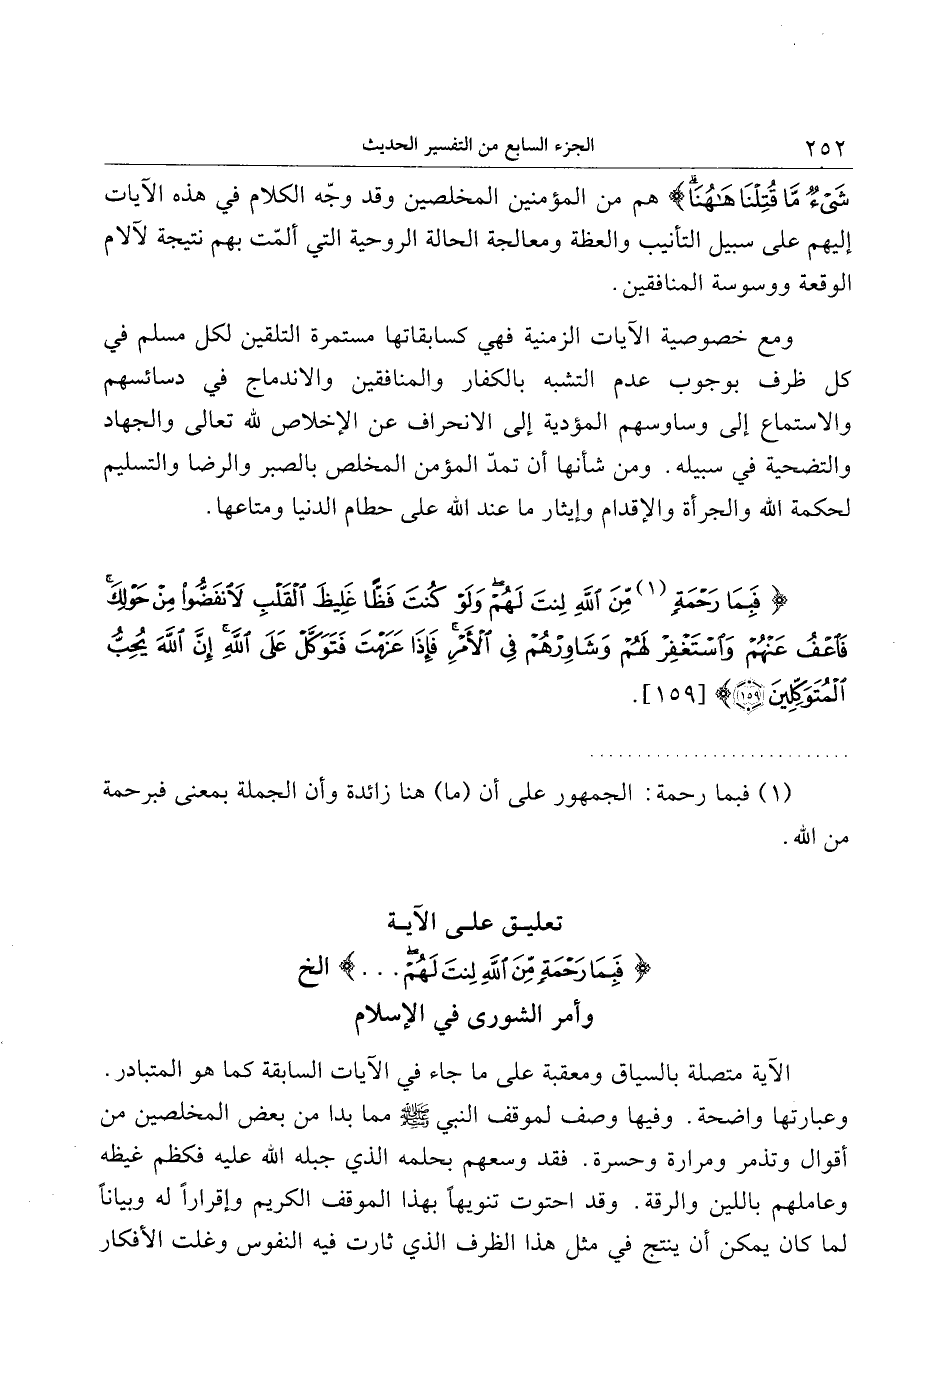 ٢٥٢ الجزء السابع من التفسير الحديث
شَىْءٌ مَّا قُتِلْنَا هَٰهُنَاۗ﴾ هم من المؤمنين المخلصين وقد وجّه الكلام في هذه الآيات
إليهم على سبيل التأنيب والعظة ومعالجة الحالة الروحية التي ألمّت بهم نتيجة لآلام
الوقعة ووسوسة المنافقين.
ومع خصوصية الآيات الزمنية فهي كسابقاتها مستمرة التلقين لكل مسلم في
كل ظرف بوجوب عدم التشبه بالكفار والمنافقين والاندماج في دسائسهم
والاستماع إلى وساوسهم المؤدية إلى الانحراف عن الإخلاص لله تعالى والجهاد
والتضحية في سبيله. ومن شأنها أن تمدّ المؤمن المخلص بالصبر والرضا والتسليم
لحكمة الله والجرأة والإقدام وإيثار ما عند الله على حطام الدنيا ومتاعها.
﴿ فَبِمَا رَحْمَةٍ (١) مِّنَ ٱللَّهِ لِنتَ لَهُمْۖ وَلَوْ كُنتَ فَظًّا غَلِيظَ ٱلْقَلْبِ لَٱنفَضُّوا۟ مِنْ حَوْلِكَۖ
فَٱعْفُ عَنْهُمْ وَٱسْتَغْفِرْ لَهُمْ وَشَاوِرْهُمْ فِى ٱلْأَمْرِۖ فَإِذَا عَزَمْتَ فَتَوَكَّلْ عَلَى ٱللَّهِۚ إِنَّ ٱللَّهَ يُحِبُّ
ٱلْمُتَوَكِّلِينَ ١٥٩﴾ [١٥٩].
..........................
(١) فبما رحمة: الجمهور على أن (ما) هنا زائدة وأن الجملة بمعنى فبرحمة
من الله.
تعليق على الآية
﴿ فَبِمَا رَحْمَةٍ مِّنَ ٱللَّهِ لِنتَ لَهُمْۖ... ﴾ الخ
وأمر الشورى في الإسلام
الآية متصلة بالسياق ومعقبة على ما جاء في الآيات السابقة كما هو المتبادر.
وعبارتها واضحة. وفيها وصف لموقف النبي ﷺ مما بدا من بعض المخلصين من
أقوال وتذمر ومرارة وحسرة. فقد وسعهم بحلمه الذي جبله الله عليه فكظم غيظه
وعاملهم باللين والرقة. وقد احتوت تنويهاً بهذا الموقف الكريم وإقراراً له وبياناً
لما كان يمكن أن ينتج في مثل هذا الظرف الذي ثارت فيه النفوس وغلت الأفكار